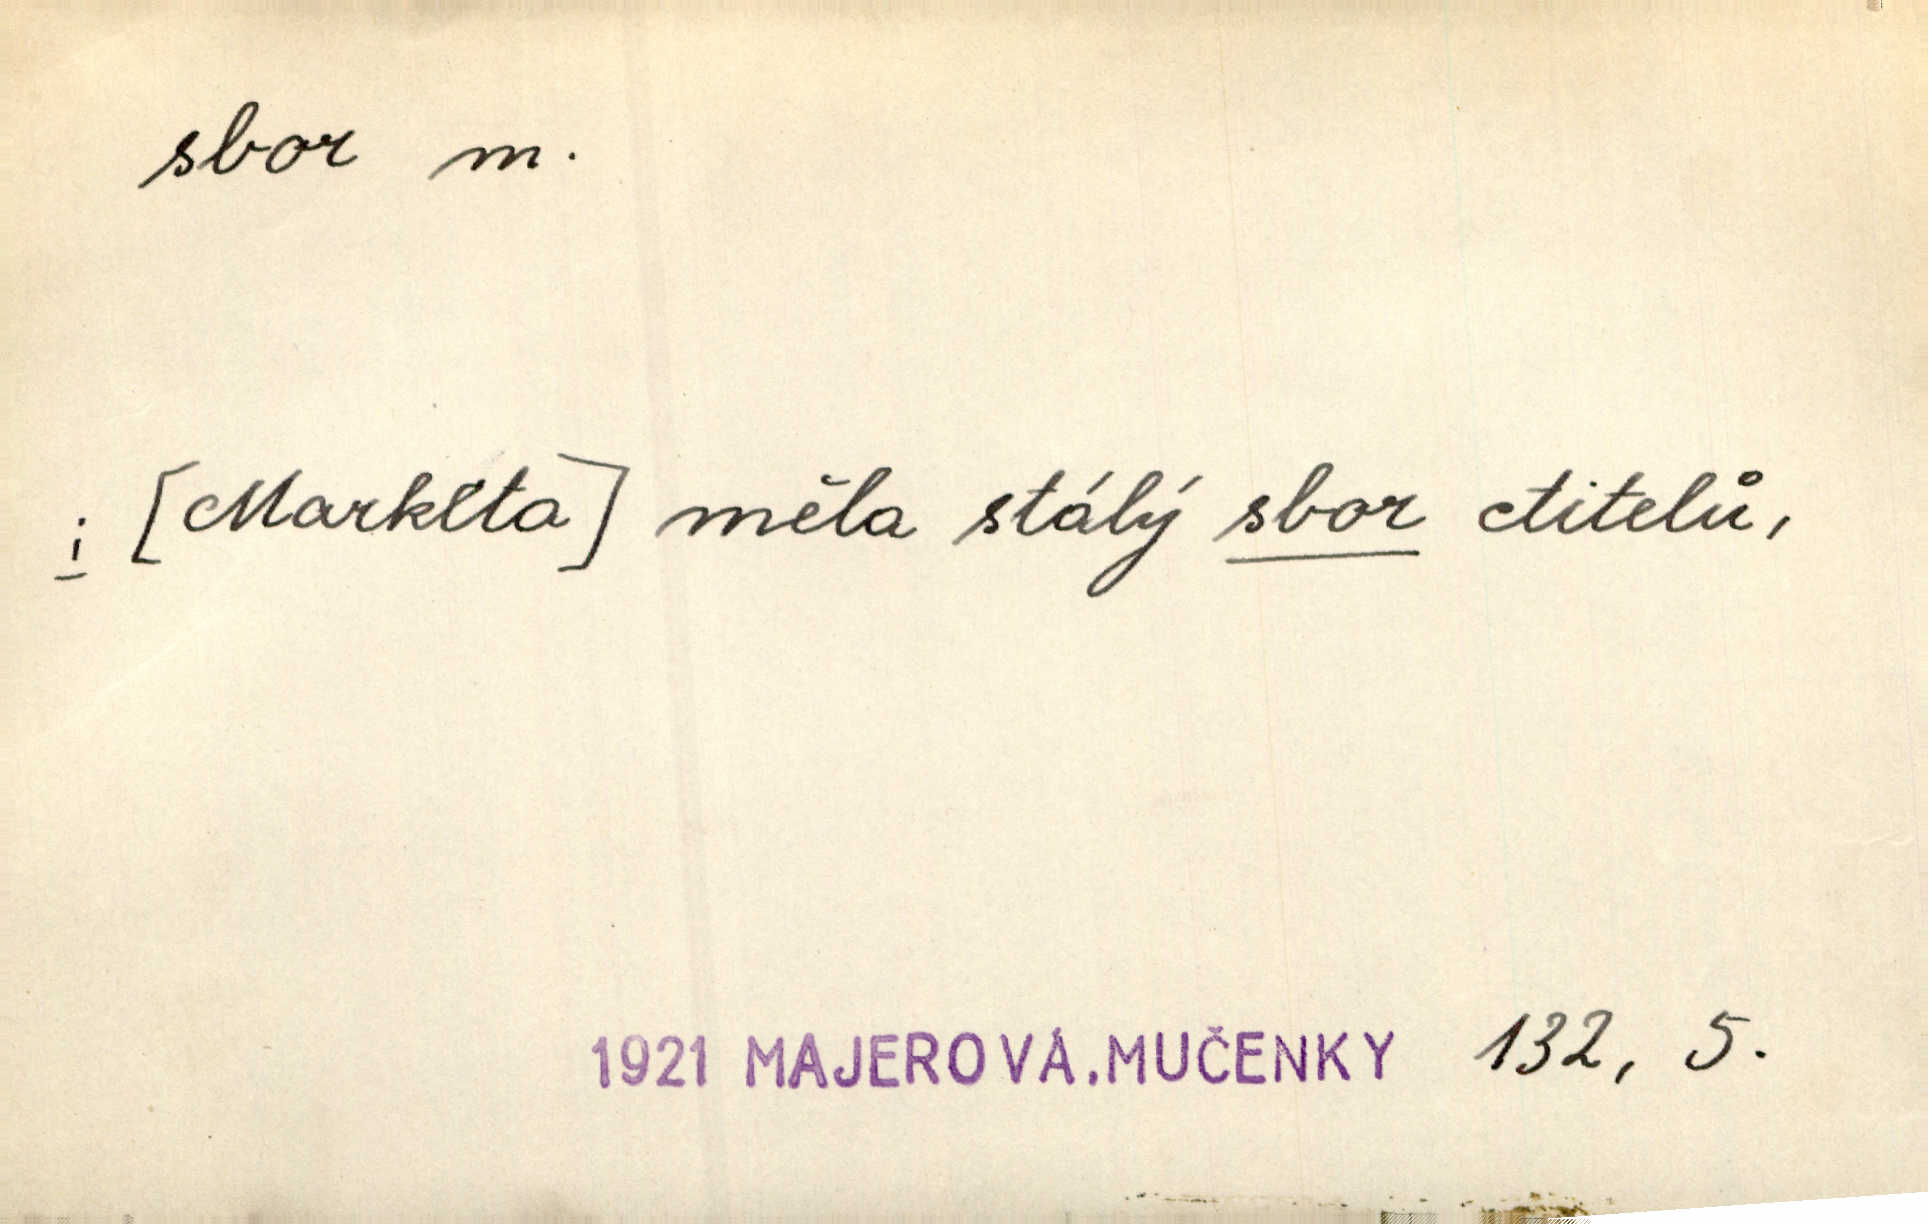 sbor m.
i [Markéta] měla stálý sbor ctitelů,
1921 MAJEROVÁ.MUČENKY 132, 5.